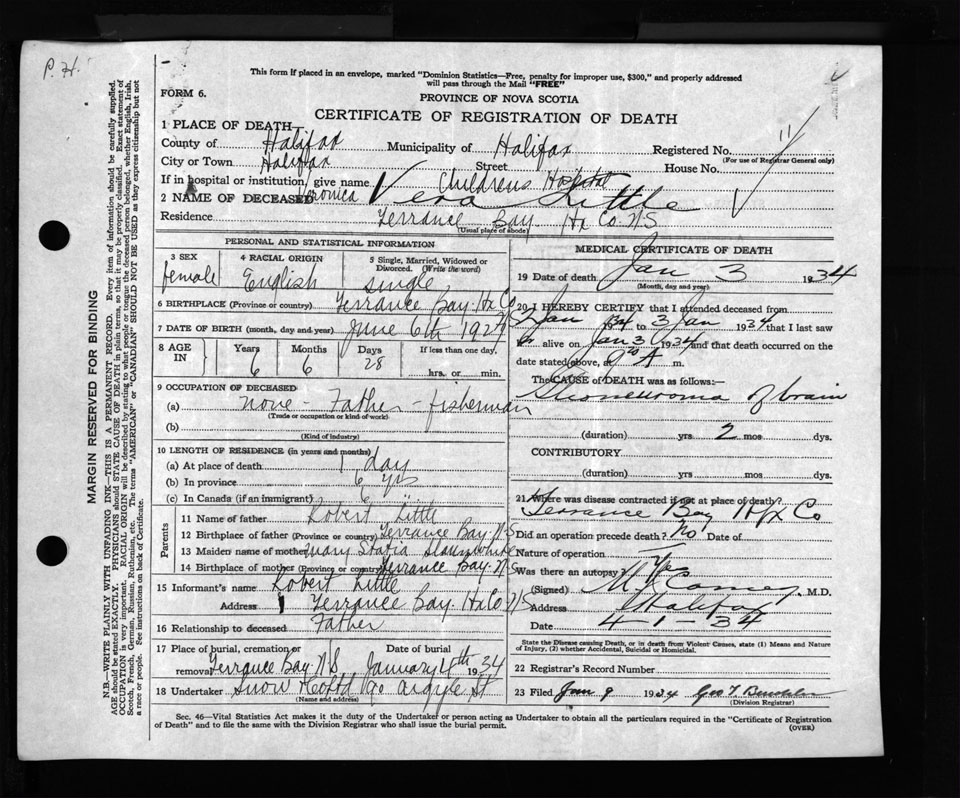 P. H.
This form if placed in an envelope, marked "Dominion Statistics—Free, penalty for improper use, $300," and properly addressed
will pass through the Mail "FREE"
FORM 6.
PROVINCE OF NOVA SCOTIA
CERTIFICATE OF REGISTRATION OF DEATH
1 PLACE OF DEATH
County of Halifax Municipality of Halifax Registered No. 11
(For use of Registrar General only)
City or Town Halifax Street House No.
If in hospital or institution, give name Childrens Hospital
2 NAME OF DECEASED Veronica Vera Little
Residence Terrance Bay Hx Co N/S
(Usual place of abode)
PERSONAL AND STATISTICAL INFORMATION
3 SEX female
4 RACIAL ORIGIN English
5 Single, Married, Widowed or Divorced. (Write the word) single
6 BIRTHPLACE (Province or country) Terrance Bay. Hx Co
7 DATE OF BIRTH (month, day and year) June 6th 1927
8 AGE IN Years Months Days If less than one day,
6 6 28 hrs. or min.
9 OCCUPATION OF DECEASED
(a) none - Father - fisherman
(Trade or occupation or kind of work)
(b)
(Kind of industry)
10 LENGTH OF RESIDENCE (in years and months)
(a) At place of death 1 day
(b) In province 6 yrs
(c) In Canada (if an immigrant) 6
Parents
11 Name of father Robert Little
12 Birthplace of father (Province or country) Terrance Bay. N-S
13 Maiden name of mother Mary Statia Slaunwhite
14 Birthplace of mother (Province or country) Terrance Bay. N-S
15 Informant's name Robert Little
Address Terrance Bay. Hx Co N/S
16 Relationship to deceased Father
17 Place of burial, cremation or removal Terrance Bay N S Date of burial January 4th 1934
18 Undertaker Snow & Co Ltd 90 Argyle St
(Name and address)
MEDICAL CERTIFICATE OF DEATH
19 Date of death Jan 3 1934
(Month, day and year)
20 I HEREBY CERTIFY that I attended deceased from
Jan to 3 Jan 1934 that I last saw
alive on Jan 3 1934 and that death occurred on the
date stated above, at A m.
The CAUSE OF DEATH was as follows:—
of brain
(duration) yrs 2 mos dys.
CONTRIBUTORY
(duration) yrs. mos. dys.
21 Where was disease contracted if not at place of death?
Terrance Bay Hfx Co
Did an operation precede death? No Date of
Nature of operation
Was there an autopsy? Yes
(Signed) M.D.
Address Halifax
Date 4-1-34
State the Disease causing Death, or in death from Violent Causes, state (1) Means and Nature of Injury, (2) whether Accidental, Suicidal or Homicidal.
22 Registrar's Record Number
23 Filed Jan 9 1934 Geo T
(Division Registrar)
Sec. 46—Vital Statistics Act makes it the duty of the Undertaker or person acting as Undertaker to obtain all the particulars required in the "Certificate of Registration
of Death" and to file the same with the Division Registrar who shall issue the burial permit.
(OVER)
MARGIN RESERVED FOR BINDING
N.B.—WRITE PLAINLY WITH UNFADING INK—THIS IS A PERMANENT RECORD. Every item of information should be carefully supplied.
AGE should be stated EXACTLY. PHYSICIANS should STATE CAUSE OF DEATH in plain terms, so that it may be properly classified. Exact statement of
OCCUPATION is very important. RACIAL ORIGIN will be described by stating to what people or tongue the deceased person belonged, whether English, Irish,
Scotch, French, German, Russian, Ruthenian, etc. The terms "AMERICAN" or "CANADIAN" SHOULD NOT BE USED as they express citizenship but not
a race or people. See instructions on back of Certificate.